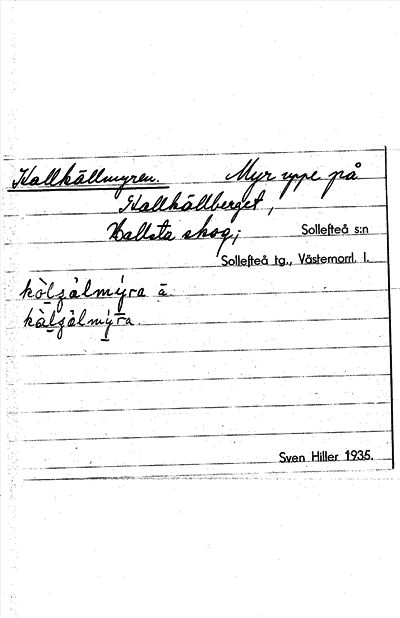 Kallkällmyren. Myr uppe på
Kallkällberget,
Vallsta skog; Sollefteå s:n
Sollefteå tg., Västernorrl. l.
Sven Hiller 1935.